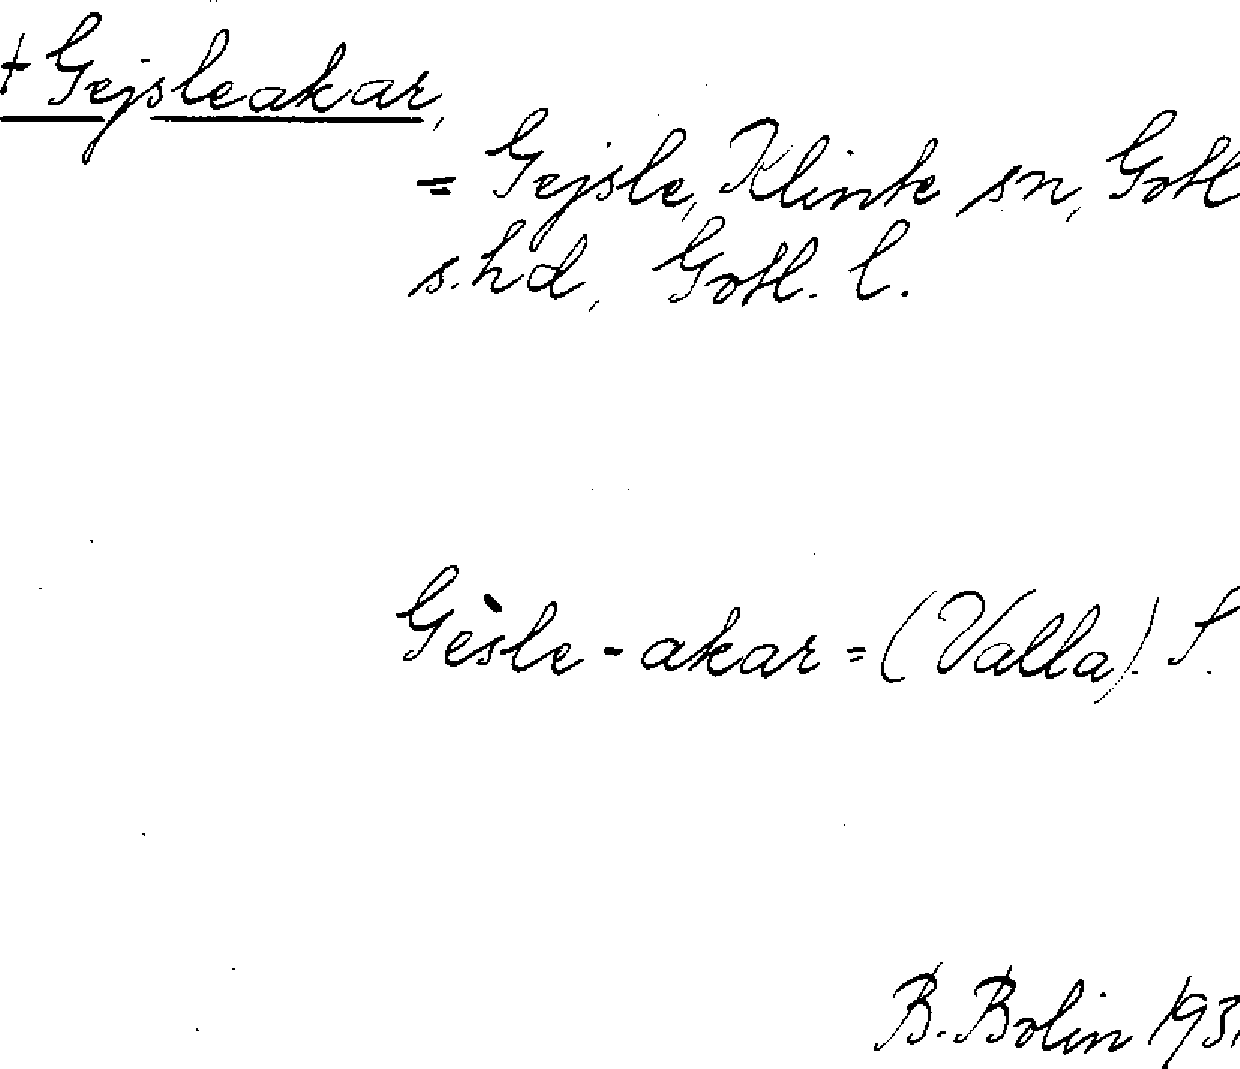 + Gejsleakar,
= Gejsle, Klinte sn, Gotl
s.hd, Gotl. l.
Gèsle-akar = (Valla). S.
B. Bolin 193